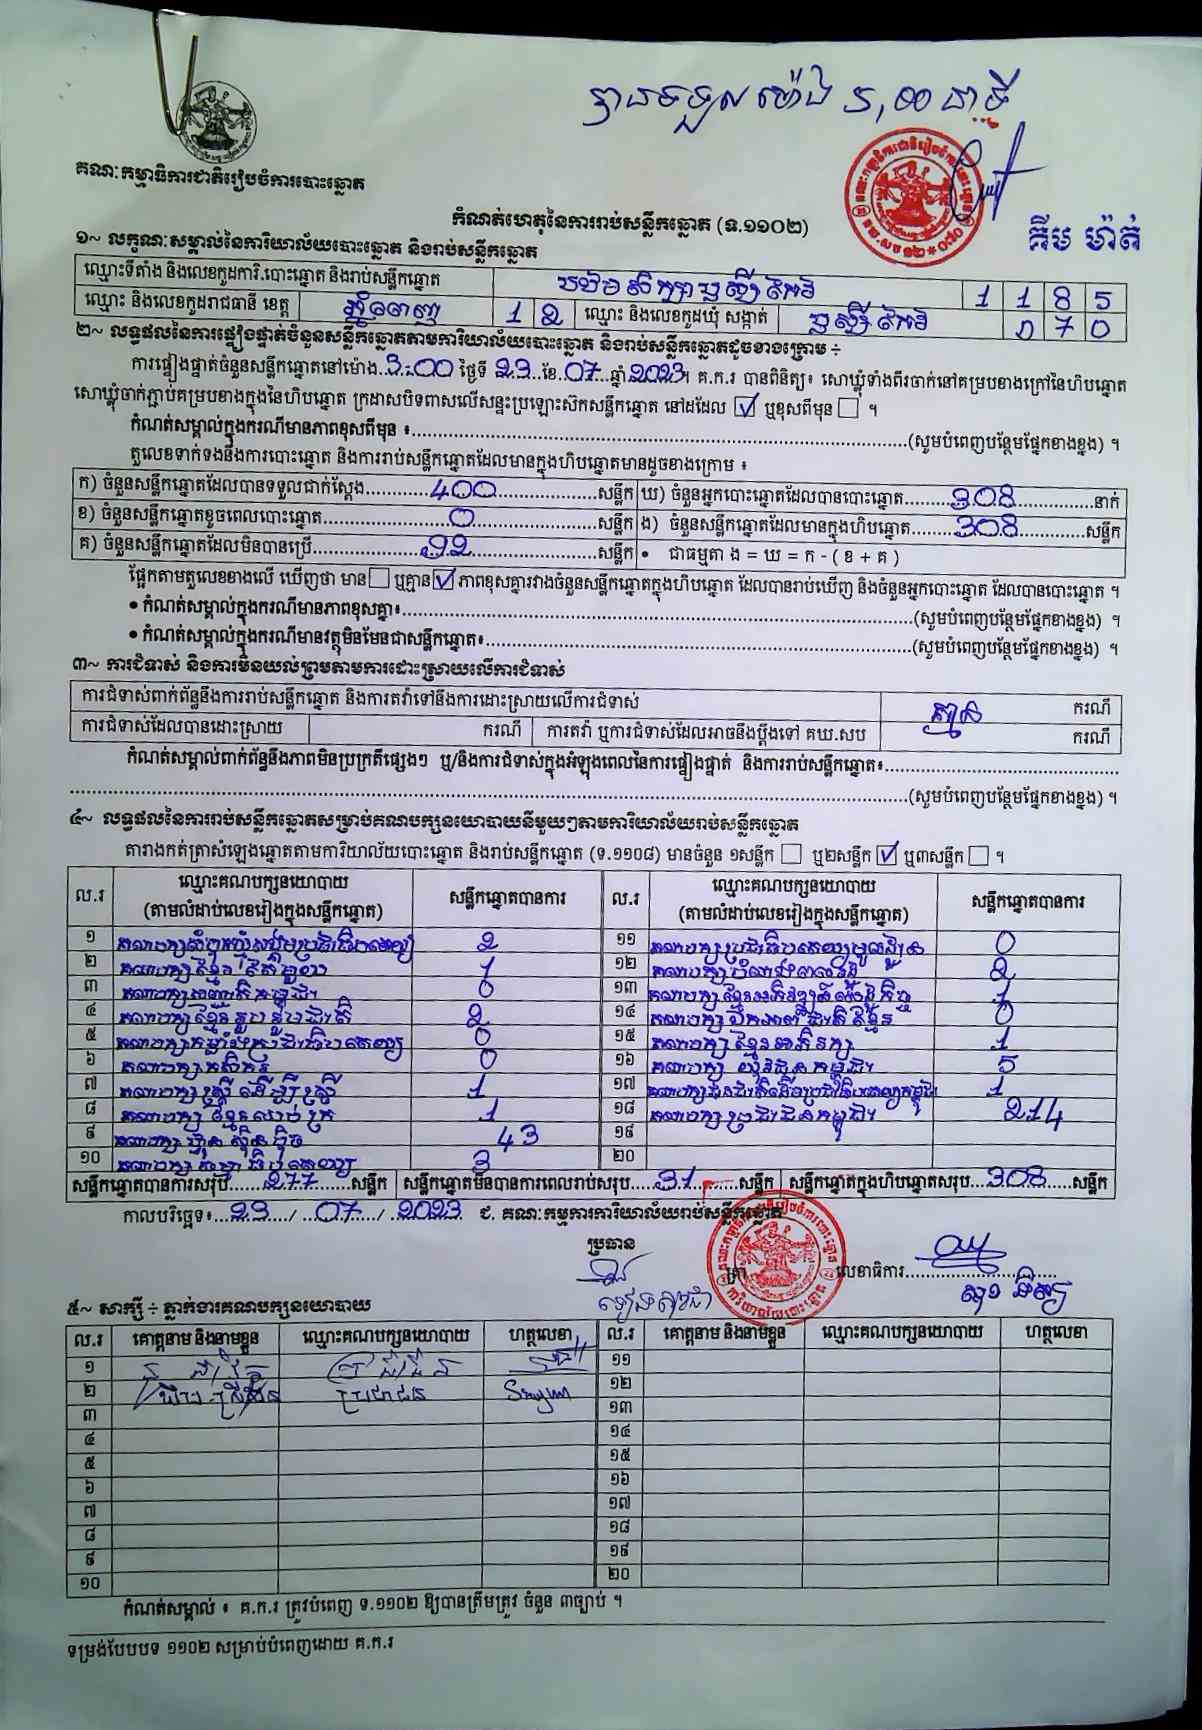 បានទទួលម៉ោង ៥,00 នាទី
គណៈកម្មាធិការជាតិរៀបចំការបោះឆ្នោត
កំណត់ហេតុនៃការរាប់សន្លឹកឆ្នោត (ទ.១១០២)
គឹម ម៉ាត់
១~ លក្ខណៈសម្គាល់នៃការិយាល័យបោះឆ្នោត និងរាប់សន្លឹកឆ្នោត
ឈ្មោះទីតាំង និងលេខកូដការិ.បោះឆ្នោត និងរាប់សន្លឹកឆ្នោត ឫស្សីកែវ 1 1 8 5
ឈ្មោះ និងលេខកូដរាជធានី ខេត្ត ភ្នំពេញ 1 2 ឈ្មោះ និងលេខកូដឃុំ សង្កាត់ ឫស្សីកែវ 0 7 0
២~ លទ្ធផលនៃការផ្ទៀងផ្ទាត់ចំនួនសន្លឹកឆ្នោតតាមការិយាល័យបោះឆ្នោត និងរាប់សន្លឹកឆ្នោតដូចខាងក្រោម ÷
ការផ្ទៀងផ្ទាត់ចំនួនសន្លឹកឆ្នោតនៅម៉ោង..3:00 ថ្ងៃទី 23...ខែ.07...ឆ្នាំ2023។ គ.ក.រ បានពិនិត្យ៖ សោឃ្លុំទាំងពីរចាក់នៅគម្របខាងក្រៅនៃហិបឆ្នោត
សោឃ្លុំចាក់ភ្ជាប់គម្របខាងក្នុងនៃហិបឆ្នោត ក្រដាសបិទពាសលើសន្ទះប្រឡោះស៊កសន្លឹកឆ្នោត នៅដដែល ☑ ឬខុសពីមុន ☐ ។
កំណត់សម្គាល់ក្នុងករណីមានភាពខុសពីមុន ៖...(សូមបំពេញបន្ថែមផ្នែកខាងខ្នង) ។
តួលេខទាក់ទងនឹងការបោះឆ្នោត និងការរាប់សន្លឹកឆ្នោតដែលមានក្នុងហិបឆ្នោតមានដូចខាងក្រោម ៖
ក) ចំនួនសន្លឹកឆ្នោតដែលបានទទួលជាក់ស្តែង...400...សន្លឹក ឃ) ចំនួនអ្នកបោះឆ្នោតដែលបានបោះឆ្នោត...308...នាក់
ខ) ចំនួនសន្លឹកឆ្នោតខូចពេលបោះឆ្នោត...0...សន្លឹក ង) ចំនួនសន្លឹកឆ្នោតដែលមានក្នុងហិបឆ្នោត...308...សន្លឹក
គ) ចំនួនសន្លឹកឆ្នោតដែលមិនបានប្រើ...92...សន្លឹក • ជាធម្មតា ង = ឃ = ក - ( ខ + គ )
ផ្អែកតាមតួលេខខាងលើ ឃើញថា មាន☐ ឬគ្មាន☑ ភាពខុសគ្នារវាងចំនួនសន្លឹកឆ្នោតក្នុងហិបឆ្នោត ដែលបានរាប់ឃើញ និងចំនួនអ្នកបោះឆ្នោត ដែលបានបោះឆ្នោត ។
• កំណត់សម្គាល់ក្នុងករណីមានភាពខុសគ្នា៖...(សូមបំពេញបន្ថែមផ្នែកខាងខ្នង) ។
• កំណត់សម្គាល់ក្នុងករណីមានវត្ថុមិនមែនជាសន្លឹកឆ្នោត៖...(សូមបំពេញបន្ថែមផ្នែកខាងខ្នង) ។
៣~ ការជំទាស់ និងការមិនយល់ព្រមតាមការដោះស្រាយលើការជំទាស់
ការជំទាស់ពាក់ព័ន្ធនឹងការរាប់សន្លឹកឆ្នោត និងការតវ៉ាទៅនឹងការដោះស្រាយលើការជំទាស់ គ្មាន ករណី
ការជំទាស់ដែលបានដោះស្រាយ ករណី ការតវ៉ា ឬការជំទាស់ដែលអាចនឹងប្តឹងទៅ គឃ.សប ករណី
កំណត់សម្គាល់ពាក់ព័ន្ធនឹងភាពមិនប្រក្រតីផ្សេងៗ ឬ/និងការជំទាស់ក្នុងអំឡុងពេលនៃការផ្ទៀងផ្ទាត់ និងការរាប់សន្លឹកឆ្នោត៖...
...(សូមបំពេញបន្ថែមផ្នែកខាងខ្នង) ។
៤~ លទ្ធផលនៃការរាប់សន្លឹកឆ្នោតសម្រាប់គណបក្សនយោបាយនីមួយៗតាមការិយាល័យរាប់សន្លឹកឆ្នោត
តារាងកត់ត្រាសំឡេងឆ្នោតតាមការិយាល័យបោះឆ្នោត និងរាប់សន្លឹកឆ្នោត (ទ.១១០៨) មានចំនួន ១សន្លឹក ☐ ឬ២សន្លឹក ☑ ឬ៣សន្លឹក ☐ ។
ល.រ ឈ្មោះគណបក្សនយោបាយ (តាមលំដាប់លេខរៀងក្នុងសន្លឹកឆ្នោត) សន្លឹកឆ្នោតបានការ ល.រ ឈ្មោះគណបក្សនយោបាយ (តាមលំដាប់លេខរៀងក្នុងសន្លឹកឆ្នោត) សន្លឹកឆ្នោតបានការ
១ គណបក្សសំបុកឃ្មុំសង្គមប្រជាធិបតេយ្យ 2 ១១ គណបក្សប្រជាធិបតេយ្យមូលដ្ឋាន 0
២ គណបក្សខ្មែរតែមួយ 1 ១២ 2
៣ 0 ១៣ គណបក្សខ្មែរអភិវឌ្ឍន៍សេដ្ឋកិច្ច 1
៤ គណបក្សខ្មែររួបរួមជាតិ 2 ១៤ គណបក្សឯកភាពជាតិខ្មែរ 0
៥ គណបក្សកម្លាំងប្រជាធិបតេយ្យ 0 ១៥ គណបក្សខ្មែរអភិរក្ស 1
៦ គណបក្សកសិករ 0 ១៦ គណបក្ស យុវជនកម្ពុជា 5
៧ គណបក្សស្ត្រីដើម្បីស្ត្រី 1 ១៧ គណបក្សជនជាតិដើមប្រជាធិបតេយ្យកម្ពុជា 1
៨ គណបក្ស ខ្មែរឈប់ក្រ 1 ១៨ គណបក្សប្រជាជនកម្ពុជា 214
៩ គណបក្ស ហ្វ៊ុនស៊ិនប៉ិច 43 ១៩
១០ គណបក្សធម្មាធិបតេយ្យ 3 ២០
សន្លឹកឆ្នោតបានការសរុប...277...សន្លឹក សន្លឹកឆ្នោតមិនបានការពេលរាប់សរុប...31...សន្លឹក សន្លឹកឆ្នោតក្នុងហិបឆ្នោតសរុប...308...សន្លឹក
កាលបរិច្ឆេទ៖...23.../...07.../...2023 ជ. គណៈកម្មការការិយាល័យរាប់សន្លឹកឆ្នោត
ប្រធាន
លេខាធិការ...
៥~ សាក្សី ÷ ភ្នាក់ងារគណបក្សនយោបាយ
ល.រ គោត្តនាម និងនាមខ្លួន ឈ្មោះគណបក្សនយោបាយ ហត្ថលេខា ល.រ គោត្តនាម និងនាមខ្លួន ឈ្មោះគណបក្សនយោបាយ ហត្ថលេខា
១ ១១
២ ប្រជាជន ១២
៣ ១៣
៤ ១៤
៥ ១៥
៦ ១៦
៧ ១៧
៨ ១៨
៩ ១៩
១០ ២០
កំណត់សម្គាល់ ៖ គ.ក.រ ត្រូវបំពេញ ទ.១១០២ ឱ្យបានត្រឹមត្រូវ ចំនួន ៣ច្បាប់ ។
ទម្រង់បែបបទ ១១០២ សម្រាប់បំពេញដោយ គ.ក.រ